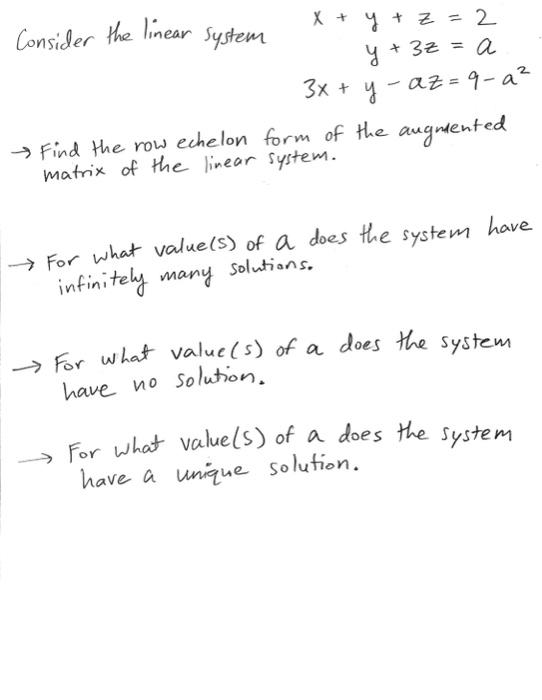 Consider the linear system
x + y + z = 2
y + 3z = a
3x + y - az = 9 - a²
→ Find the row echelon form of the augmented
matrix of the linear system.
→ For what value(s) of a does the system have
infinitely many solutions.
→ For what value(s) of a does the system
have no solution.
→ For what value(s) of a does the system
have a unique solution.